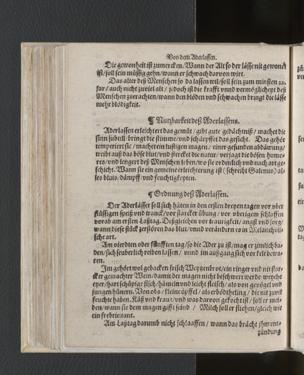 Von dem Aderlassen.
Die gewonheit ist zumercken/Wann der Alt so der lässe nit gewont
ist/soll sein müssig gehn/wann er schwach darvon wirt.
Das alter deß Menschen so da lassen wil/soll sein zum minsten
jar/auch nicht zu viel alt/ jedoch ist die krafft vnnd vermöglicheyt deß
Menschen zuerachten/wann den blöden vnd schwachen bringt die lässe
mehr blödigkeit.
¶ Nutzbarkeit deß Aderlassens.
Aderlassen erleichtert das gemüt/gibt gute gedächtnuß/machet die
bringt die stimme/vnd schärpffet das gesicht. Das gehör
temperiert sie/machet ein lustigen magen/ gute däuwung/
treibt auß das böse blut/vnd stercket die natur/ verjagt die bösen humo-
res/vnd lengert des Menschen leben/wo sie ordenlich vnd nach art ge-
schicht. Wann sie ein gemeine erleichterung ist (schreibt Galenus) al-
les bluts/dämpff/vnd feuchtigkeyten.
¶ Ordnung deß Aderlassens.
Der Aderlässer soll sich hüten in den ersten dreyen tagen vor vber-
flüssigen speiß vnd tranck/vor starcker vbung/vor vbrigem schlaffen
vorab am ersten Laßtag. Desgleichen vor traurigkeit/ vnd sorg/
wann diese stück zerstören das blut/vnd verändern es in Melancholi-
sche art.
Am vierdten oder fünfften tag/so die Ader zu ist/mag er zimlich ba-
den/sich seuberlich reiben lassen/ vnnd im außgang sich vor kelt bewa-
ren.
Jm gehört wol gebacken frisch Weytzenbrot/ein ringer vnd nit star-
cker gemachter Wein/ dann der magen nicht beschweret werde/weych
eyer/ hart schüpfig fisch/hünern vnd leicht fleisch/ als von
vnd jungen hünern. Von obs/ kleine äpffel/ als erbößtheling/ die nit zuvil
feuchte haben. Käß vnd kraut/vnd was darvon gekocht ist/ soll er mei-
den/wann sie dem magen sind / Milch soll er fliehen/gleich wie
ein frebrierant.
Am Laßtag darumb nicht schlaaffen/ wann das brächt
zündung